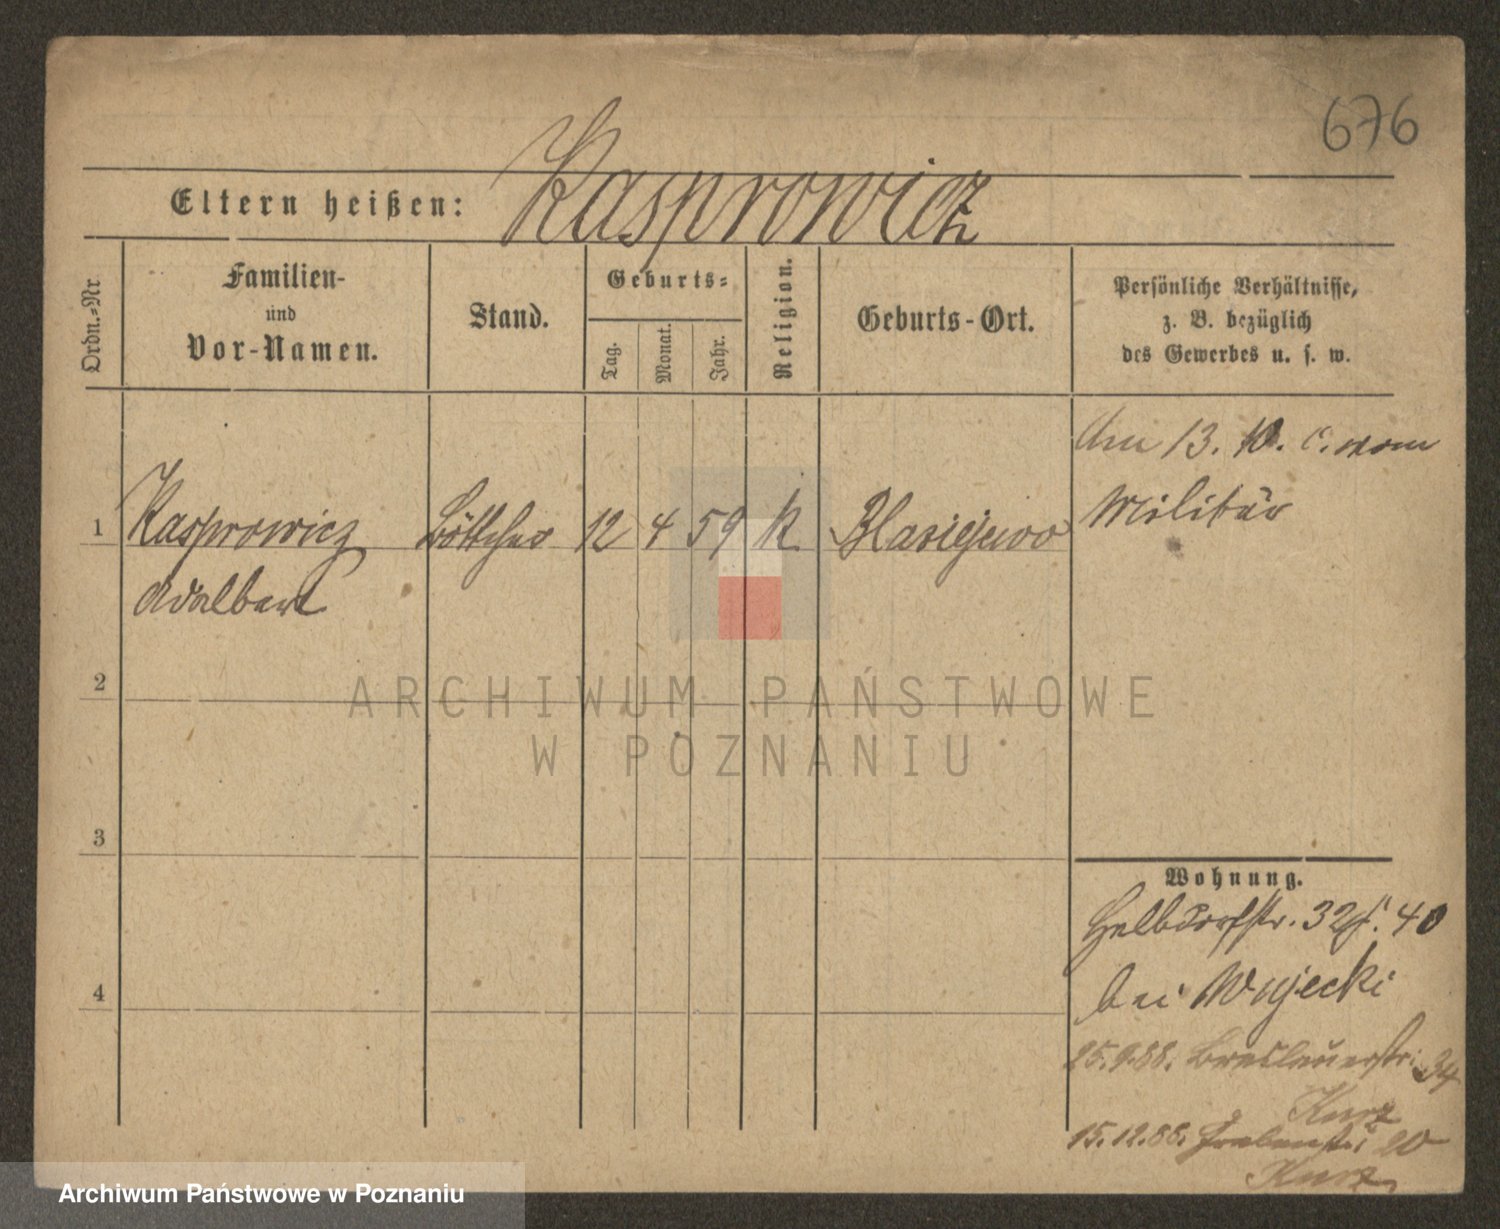 676
Eltern heißen: Kasprowicz
Ordn.-Nr.
Familien-
und
Vor-Namen.
Stand.
Geburts-
Tag.
Monat.
Jahr.
Religion.
Geburts-Ort.
Persönliche Verhältnisse,
z. B. bezüglich
des Gewerbes u. s. w.
Am 13. 10. c. vom
Militär
1 Kasprowicz Böttcher 12 4 59 k Blasiejewo
Adalbert
2
ARCHIWUM PAŃSTWOWE
W POZNANIU
3
Wohnung.
Halbdorfstr. 32 40
bei Wujecki
4
25.9.88. Breslauerstr. 34
Kurz
15.12.88. Grabenstr. 20
Kurz
Archiwum Państwowe w Poznaniu